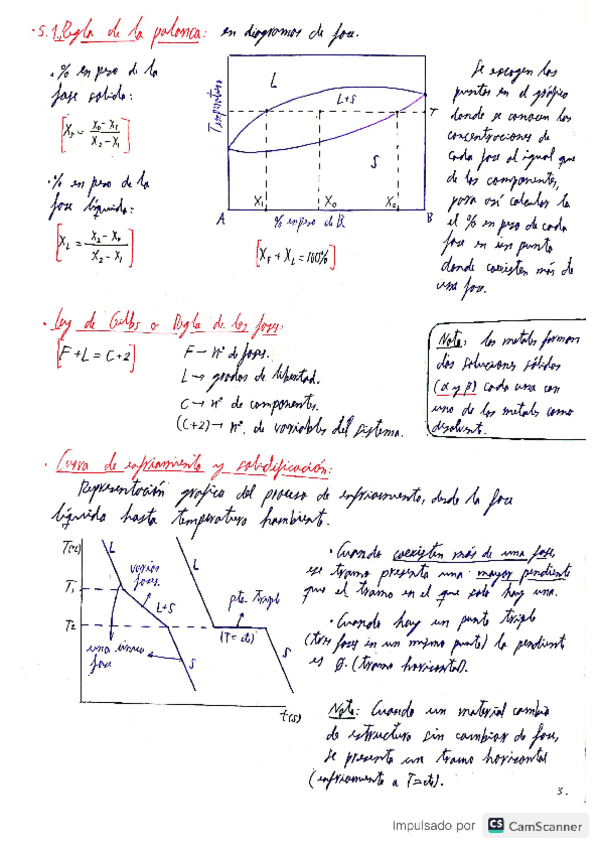 · 5.1. Regla de la palanca: en diagramas de fase.
· % en peso de la
fase solida:
[X_F = (X_0 - X_1) / (X_2 - X_1)]
· % en peso de la
fase líquida:
[X_L = (X_2 - X_0) / (X_2 - X_1)]
Temperatura
L
L+S
S
T
X1 X0 X2
A % en peso de B B
[X_F + X_L = 100%]
Se escogen los
puntos en el gráfico
donde se conocen las
concentraciones de
cada fase al igual que
de los componentes,
para así calcular
el % en peso de cada
fase en un punto
donde coexisten más de
una fase.
· Ley de Gibbs o Regla de las fases:
[F + L = C + 2]
F → nº de fases.
L → grados de libertad.
C → nº de componentes.
(C+2) → nº. de variables del sistema.
Nota: los metales forman
dos soluciones sólidas
(α y β) cada una con
uno de los metales como
disolvent.
· Curva de enfriamiento y solidificación:
Representación gráfica del proceso de enfriamiento, desde la fase
líquida hasta temperatura hambiente.
T(ºC)
L
varias
fases
T1
L+S
T2
una única
fase
S
L
pto. triple
(T=ct)
S
t(s)
· Cuando coexisten más de una fase,
ese tramo presenta una mayor pendiente
que el tramo en el que solo hay una.
· Cuando hay un punto triple
(tres fases en un mismo punto) la pendient
es 0. (tramo horizontal).
Nota: Cuando un material cambia
de estructura sin cambiar de fase,
se presenta un tramo horizontal
(enfriamiento a T=ct).
3.
Impulsado por CS CamScanner